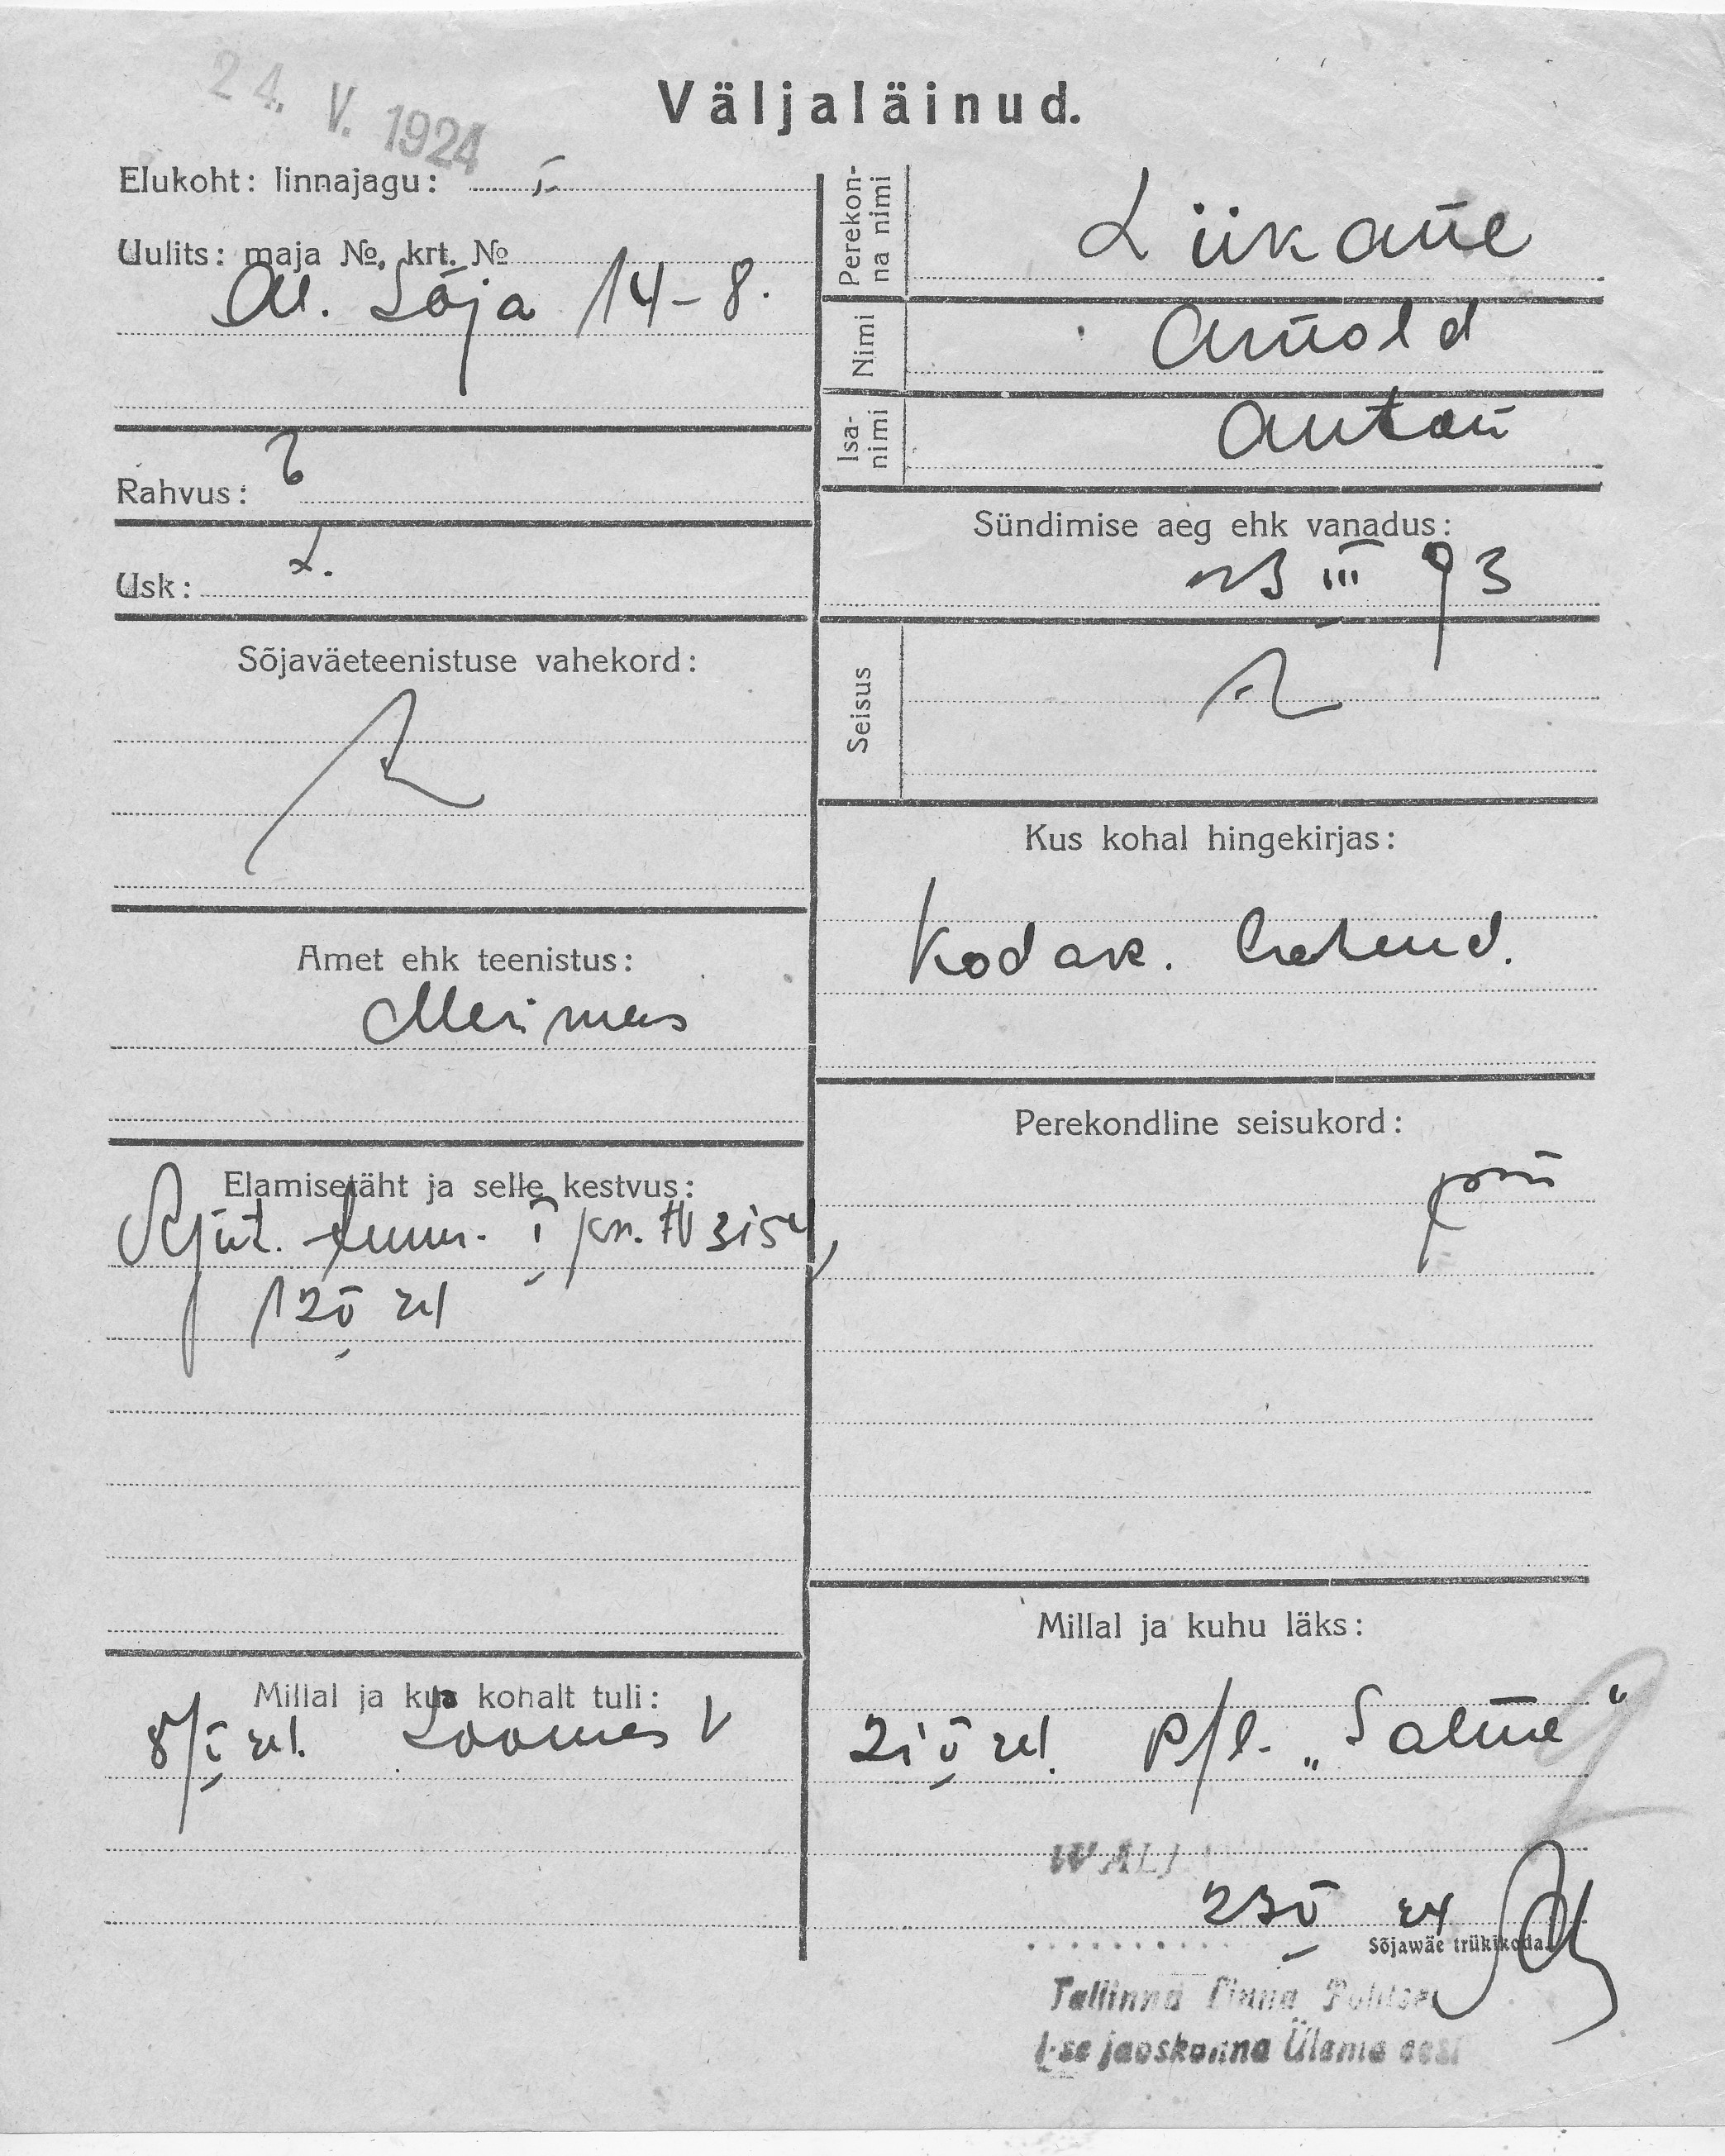 24. V. 1924
Väljaläinud.
Elukoht: linnajagu: I
Uulits: maja №, krt. №
14-8.
Rahvus: E
Usk: L.
Sõjaväeteenistuse vahekord:
Amet ehk teenistus:
Meremees
Elamisetäht ja selle kestvus:
I jsk. № 3154
12 V 24
Millal ja kus kohalt tuli:
8/V 24. Soomest
Perekonna nimi
Liikane
Nimi
Arnold
Isanimi
Anton
Sündimise aeg ehk vanadus:
23 III 93
Seisus
Kus kohal hingekirjas:
Kodak.
Perekondline seisukord:
Millal ja kuhu läks:
21 V 24. p/l. „Salme“
WALJ
23 V 24
Sõjawäe trükikoda.
Tallinna Linna Politsei
I-se jaoskonna Ülema eest